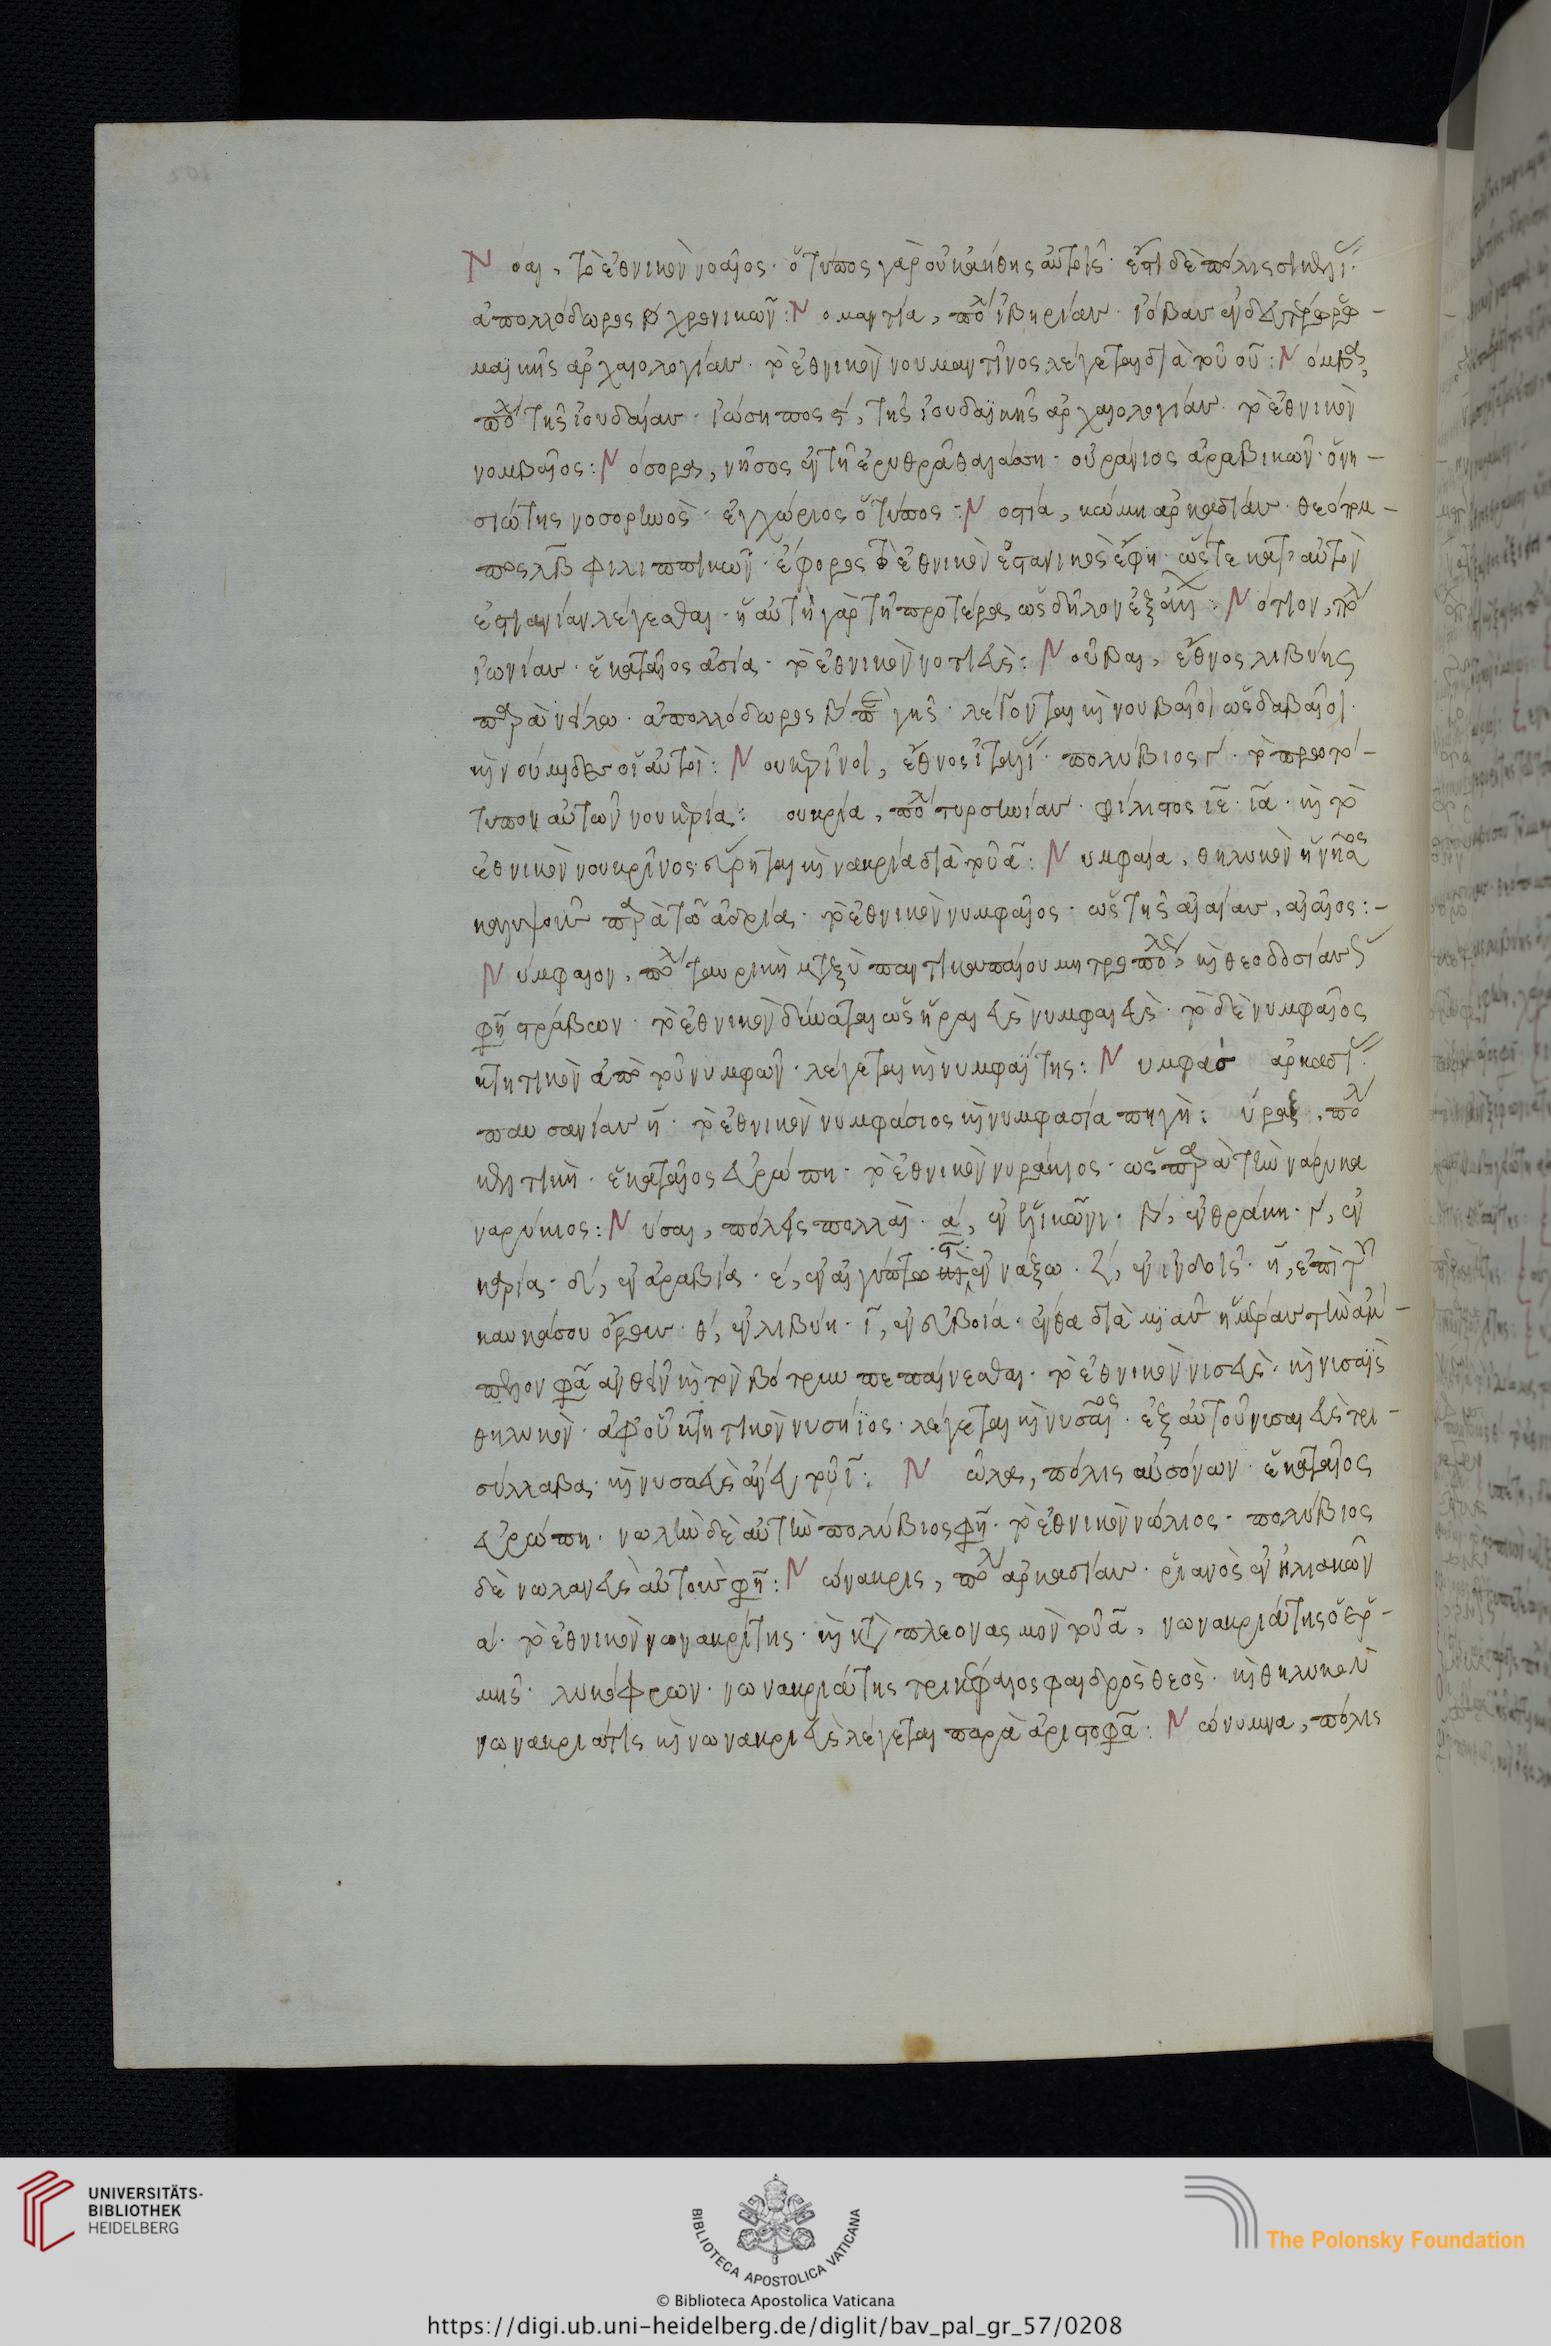 Νόαι, τὸ ἐθνικὸν νοαῖος. ὁ τύπος γὰρ οὐκ ἀήθης αὐτοῖς. ἔστι δὲ πόλις σικελί
ἀπολλόδωρος χρονικῶν: Νομαντία, πόλ ἰβηρίας. ἰόβας ἐν δευτέρᾳ ῥω-
μαϊκῆς ἀρχαιολογίας. τὸ ἐθνικὸν νουμαντῖνος λέγεται διὰ τοῦ ου: Νόμβα,
πόλ τῆς ἰουδαίας. ἰώσηπος ϛ, τῆς ἰουδαϊκῆς ἀρχαιολογίας. τὸ ἐθνικὸν
νομβαῖος: Νόσορα, νῆσος ἐν τῇ ἐρυθρᾷ θαλάσσῃ. οὐράνιος ἀραβικῶν. ὁ νη-
σιώτης νοσορινὸς. ἐγχώριος ὁ τύπος: Νοστία, κώμη ἀρκαδίας. θεόπομ-
πος λβ φιλιππικῶν. ἔφορος τὸ ἐθνικὸν ἑστανικὸς ἔφη. ὥστε κατ' αὐτὸν
ἑστιανίαν λέγεσθαι. ἡ αὐτὴ γὰρ τῇ προτέρᾳ ὡς δῆλον : Νότιον, πόλ
ἰωνίας. ἑκαταῖος ἀσία. τὸ ἐθνικὸν νοτιεὺς: Νοῦβαι, ἔθνος λιβύης
παρὰ νείλῳ. ἀπολλόδωρος β π γῆς. λέγονται καὶ νουβαῖοι ὡς δαβαῖοι.
καὶ νούμιδες οἱ αὐτοὶ: Νουκρῖνοι, ἔθνος ἰταλί. πολύβιος γ. τὸ πρωτό-
τυπον αὐτῶν νουκρία: ουκρία, πόλ τυρσηνίας. φίλιστος ιε. ια. καὶ τὸ
ἐθνικὸν νουκρῖνος. εὕρηται καὶ νακρία διὰ τοῦ α: Νυμφαία, θηλυκὸν ἡ νῆσος
καλυψοῦς παρὰ τῷ ἀδρίᾳ. τὸ ἐθνικὸν νυμφαῖος. ὡς τῆς αἰαίας, αἰαῖος:-
Νύμφαιον, πόλ ταυρικὴ μεταξὺ παντικαπαίου μητροπόλ, καὶ θεοδοσίας
φη στράβων. τὸ ἐθνικὸν δύναται ὡς ἡραιεὺς νυμφαιεὺς. τὸ δὲ νυμφαῖος
κτητικὸν ἀπὸ τοῦ νυμφῶν. λέγεται καὶ νυμφαΐτης: Νυμφασ ἀρκαδί
παυσανίας η. τὸ ἐθνικὸν νυμφάσιος καὶ νυμφασία πηγὴ: ύραξ, πόλ
κελτικὴ. ἑκαταῖος εὐρώπῃ. τὸ ἐθνικὸν νυράκιος. ὡς παρὰ τὴν νάρυκα
ναρύκιος: Νύσαι, πόλεις πολλαί. α, ἐν ἑλικῶνι. β, ἐν θράκῃ. γ, ἐν
καρίᾳ. δ, ἐν ἀραβίᾳ. ε, ἐν αἰγύπτῳ ϛ ἐν νάξῳ. ζ, ἐν ἰνδοῖς. η, ἐπὶ τοῦ
καυκάσου ὄρους. θ, ἐν λιβύῃ. ι, ἐν εὐβοίᾳ. ἔνθα διὰ μιᾶς ἡμέρας τὴν ἄμ-
πελον φα ἀνθεῖν καὶ τὸν βότρυν πεπαίνεσθαι. τὸ ἐθνικὸν νισεὺς. καὶ νισαῒς
θηλυκὸν. ἀφ' οὗ κτητικὸν νυσήϊος. λέγεται καὶ νυσαῖος. ἐξ αὐτοῦ νισαιεὺς τρι-
σύλλαβα. καὶ νυσαεὺς ἄνευ τοῦ ι: Νῶλα, πόλις αὐσόνων. ἑκαταῖος
εὐρώπῃ. νωλὴν δὲ αὐτὴν πολύβιος φη. τὸ ἐθνικὸν νώλιος. πολύβιος
δὲ νωλανεὺς αὐτοὺς φη: Νώνακρις, πόλ ἀρκαδίας. ῥιανὸς ἐν ἠλιακῶν
α. τὸ ἐθνικὸν νωνακρίτης. καὶ κατὰ πλεονασμὸν τοῦ α, νωνακριάτης ὁ ἑρ-
μῆς. λυκόφρων. νωνακριάτης τρικέφαλος φαιδρὸς θεὸς. καὶ θηλυκὸν
νωνακριάτις καὶ νωνακριεὺς λέγεται παρὰ ἀριστοφα: Νώνυμνα, πόλις
UNIVERSITÄTS-
BIBLIOTHEK
HEIDELBERG
BIBLIOTECA APOSTOLICA VATICANA
The Polonsky Foundation
© Biblioteca Apostolica Vaticana
https://digi.ub.uni-heidelberg.de/diglit/bav_pal_gr_57/0208